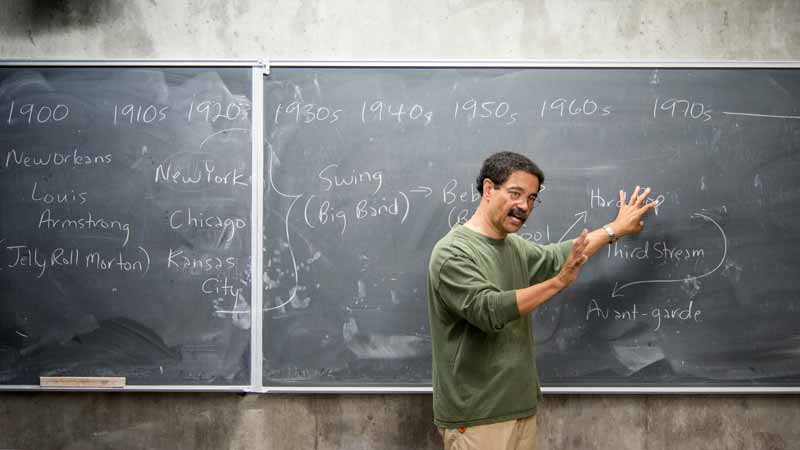 1900 1910s 1920s 1930s 1940s 1950s 1960s 1970s
New Orleans
Louis
Armstrong
(Jelly Roll Morton)
New York
Chicago
Kansas
City
Swing
(Big Band)
Third Stream
Avant-garde